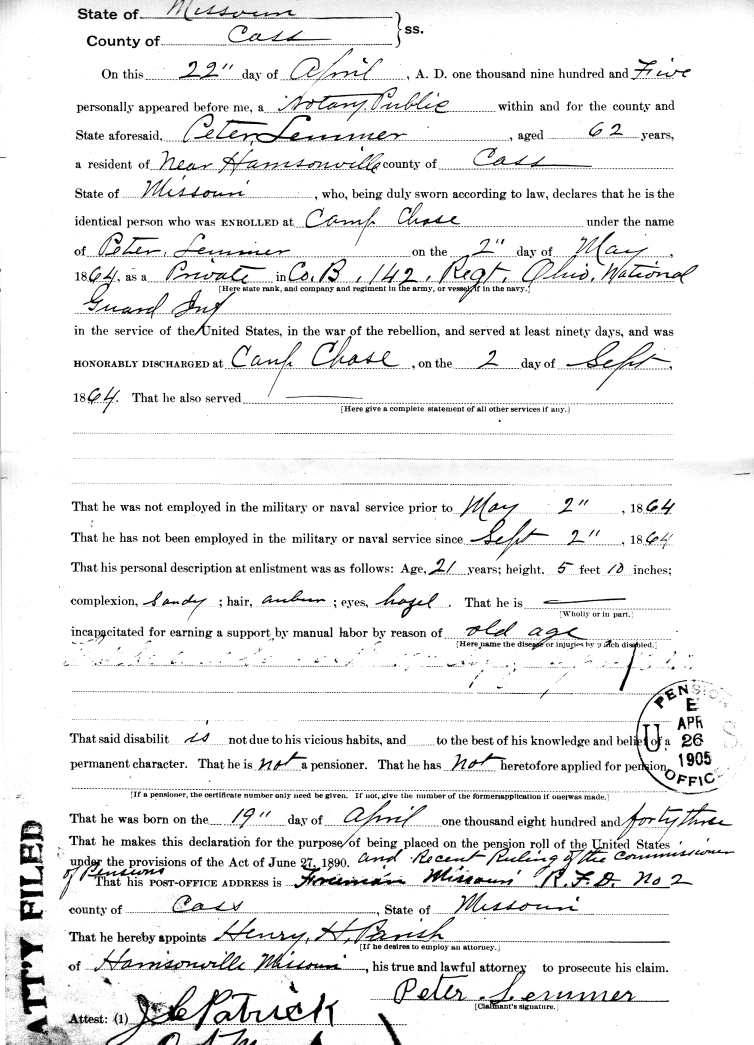 State of Missouri
County of Cass } ss.
On this 22" day of April, A. D. one thousand nine hundred and Five
personally appeared before me, a Notary Public within and for the county and
State aforesaid, Peter Lemmer, aged 62 years,
a resident of Near Harrisonville county of Cass
State of Missouri, who, being duly sworn according to law, declares that he is the
identical person who was ENROLLED at Camp Chase under the name
of Peter Lemmer on the 2" day of May,
1864, as a Private in Co. B, 142, Regt, Ohio, National
[Here state rank, and company and regiment in the army, or vessel, if in the navy.]
Guard Inf
in the service of the United States, in the war of the rebellion, and served at least ninety days, and was
HONORABLY DISCHARGED at Camp Chase, on the 2 day of Sept,
1864. That he also served
[Here give a complete statement of all other services if any.]
That he was not employed in the military or naval service prior to May 2", 1864
That he has not been employed in the military or naval service since Sept 2", 1864
That his personal description at enlistment was as follows: Age, 21 years; height, 5 feet 10 inches;
complexion, Sandy; hair, auburn; eyes, hazel. That he is
[Wholly or in part.]
incapacitated for earning a support by manual labor by reason of old age
[Here name the disease or injuries by which disabled.]
That said disabilit is not due to his vicious habits, and to the best of his knowledge and belief of a
permanent character. That he is not a pensioner. That he has not heretofore applied for pension
[If a pensioner, the certificate number only need be given. If not, give the number of the former application if one was made.]
U. S. PENSION OFFICE
E
APR
26
1905
That he was born on the 19" day of April one thousand eight hundred and forty three
That he makes this declaration for the purpose of being placed on the pension roll of the United States
under the provisions of the Act of June 27, 1890. and Recent Ruling of the Commissioner
of Pensions
That his POST-OFFICE ADDRESS is Freeman Missouri R.F.D. No 2
county of Cass, State of Missouri
That he hereby appoints Henry, H, Parish
[If he desires to employ an attorney.]
of Harrisonville Missouri, his true and lawful attorney to prosecute his claim.
Peter Lemmer
[Claimant's signature.]
Attest: (1) J C Patrick
ATT'Y FILED